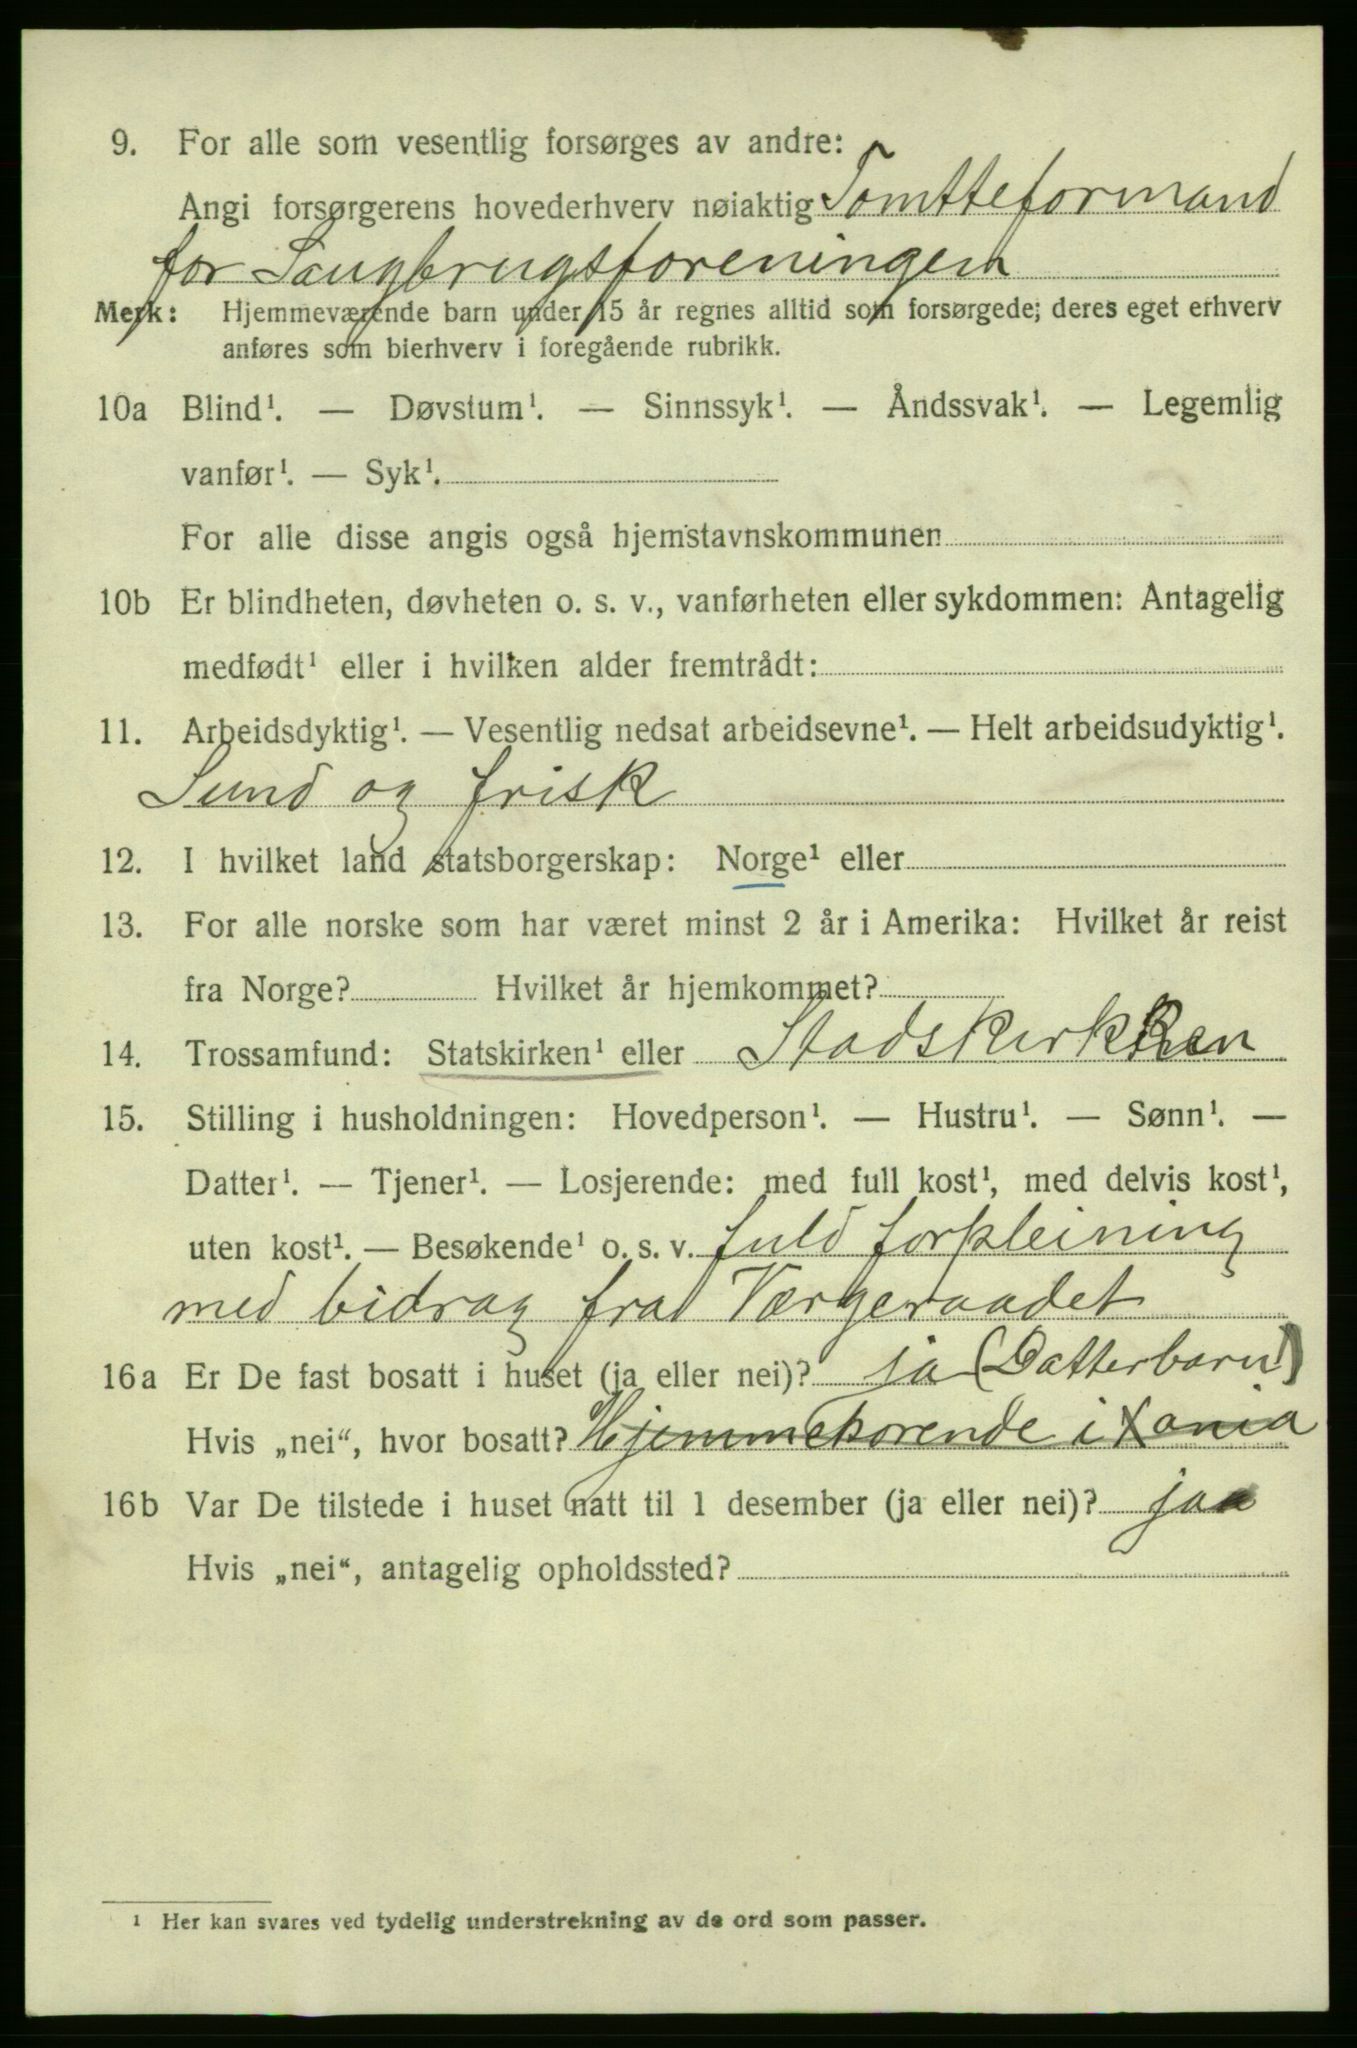 9. For alle som vesentlig forsørges av andre:
Angi forsørgerens hovederhverv nøiaktig Tomtteformand
for Saugbrugsforeningen
Merk: Hjemmeværende barn under 15 år regnes alltid som forsørgede; deres eget erhverv
anføres som bierhverv i foregående rubrikk.
10a Blind¹. — Døvstum¹. — Sinnssyk¹. — Åndssvak¹. — Legemlig
vanfør¹. — Syk¹.
For alle disse angis også hjemstavnskommunen
10b Er blindheten, døvheten o. s. v., vanførheten eller sykdommen: Antagelig
medfødt¹ eller i hvilken alder fremtrådt:
11. Arbeidsdyktig¹. — Vesentlig nedsat arbeidsevne¹. — Helt arbeidsudyktig¹.
Sund og frisk
12. I hvilket land statsborgerskap: Norge¹ eller
13. For alle norske som har været minst 2 år i Amerika: Hvilket år reist
fra Norge? Hvilket år hjemkommet?
14. Trossamfund: Statskirken¹ eller Stadskirkken
15. Stilling i husholdningen: Hovedperson¹. — Hustru¹. — Sønn¹. —
Datter¹. — Tjener¹. — Losjerende: med full kost¹, med delvis kost¹,
uten kost¹. — Besøkende¹ o. s. v. fuld forpleining
med bidrag fra Værgeraadet
16a Er De fast bosatt i huset (ja eller nei)? ja (Datterbarn)
Hvis „nei“, hvor bosatt? Hjemmehørende i Xania
16b Var De tilstede i huset natt til 1 desember (ja eller nei)? ja
Hvis „nei“, antagelig opholdssted?
¹ Her kan svares ved tydelig understrekning av de ord som passer.